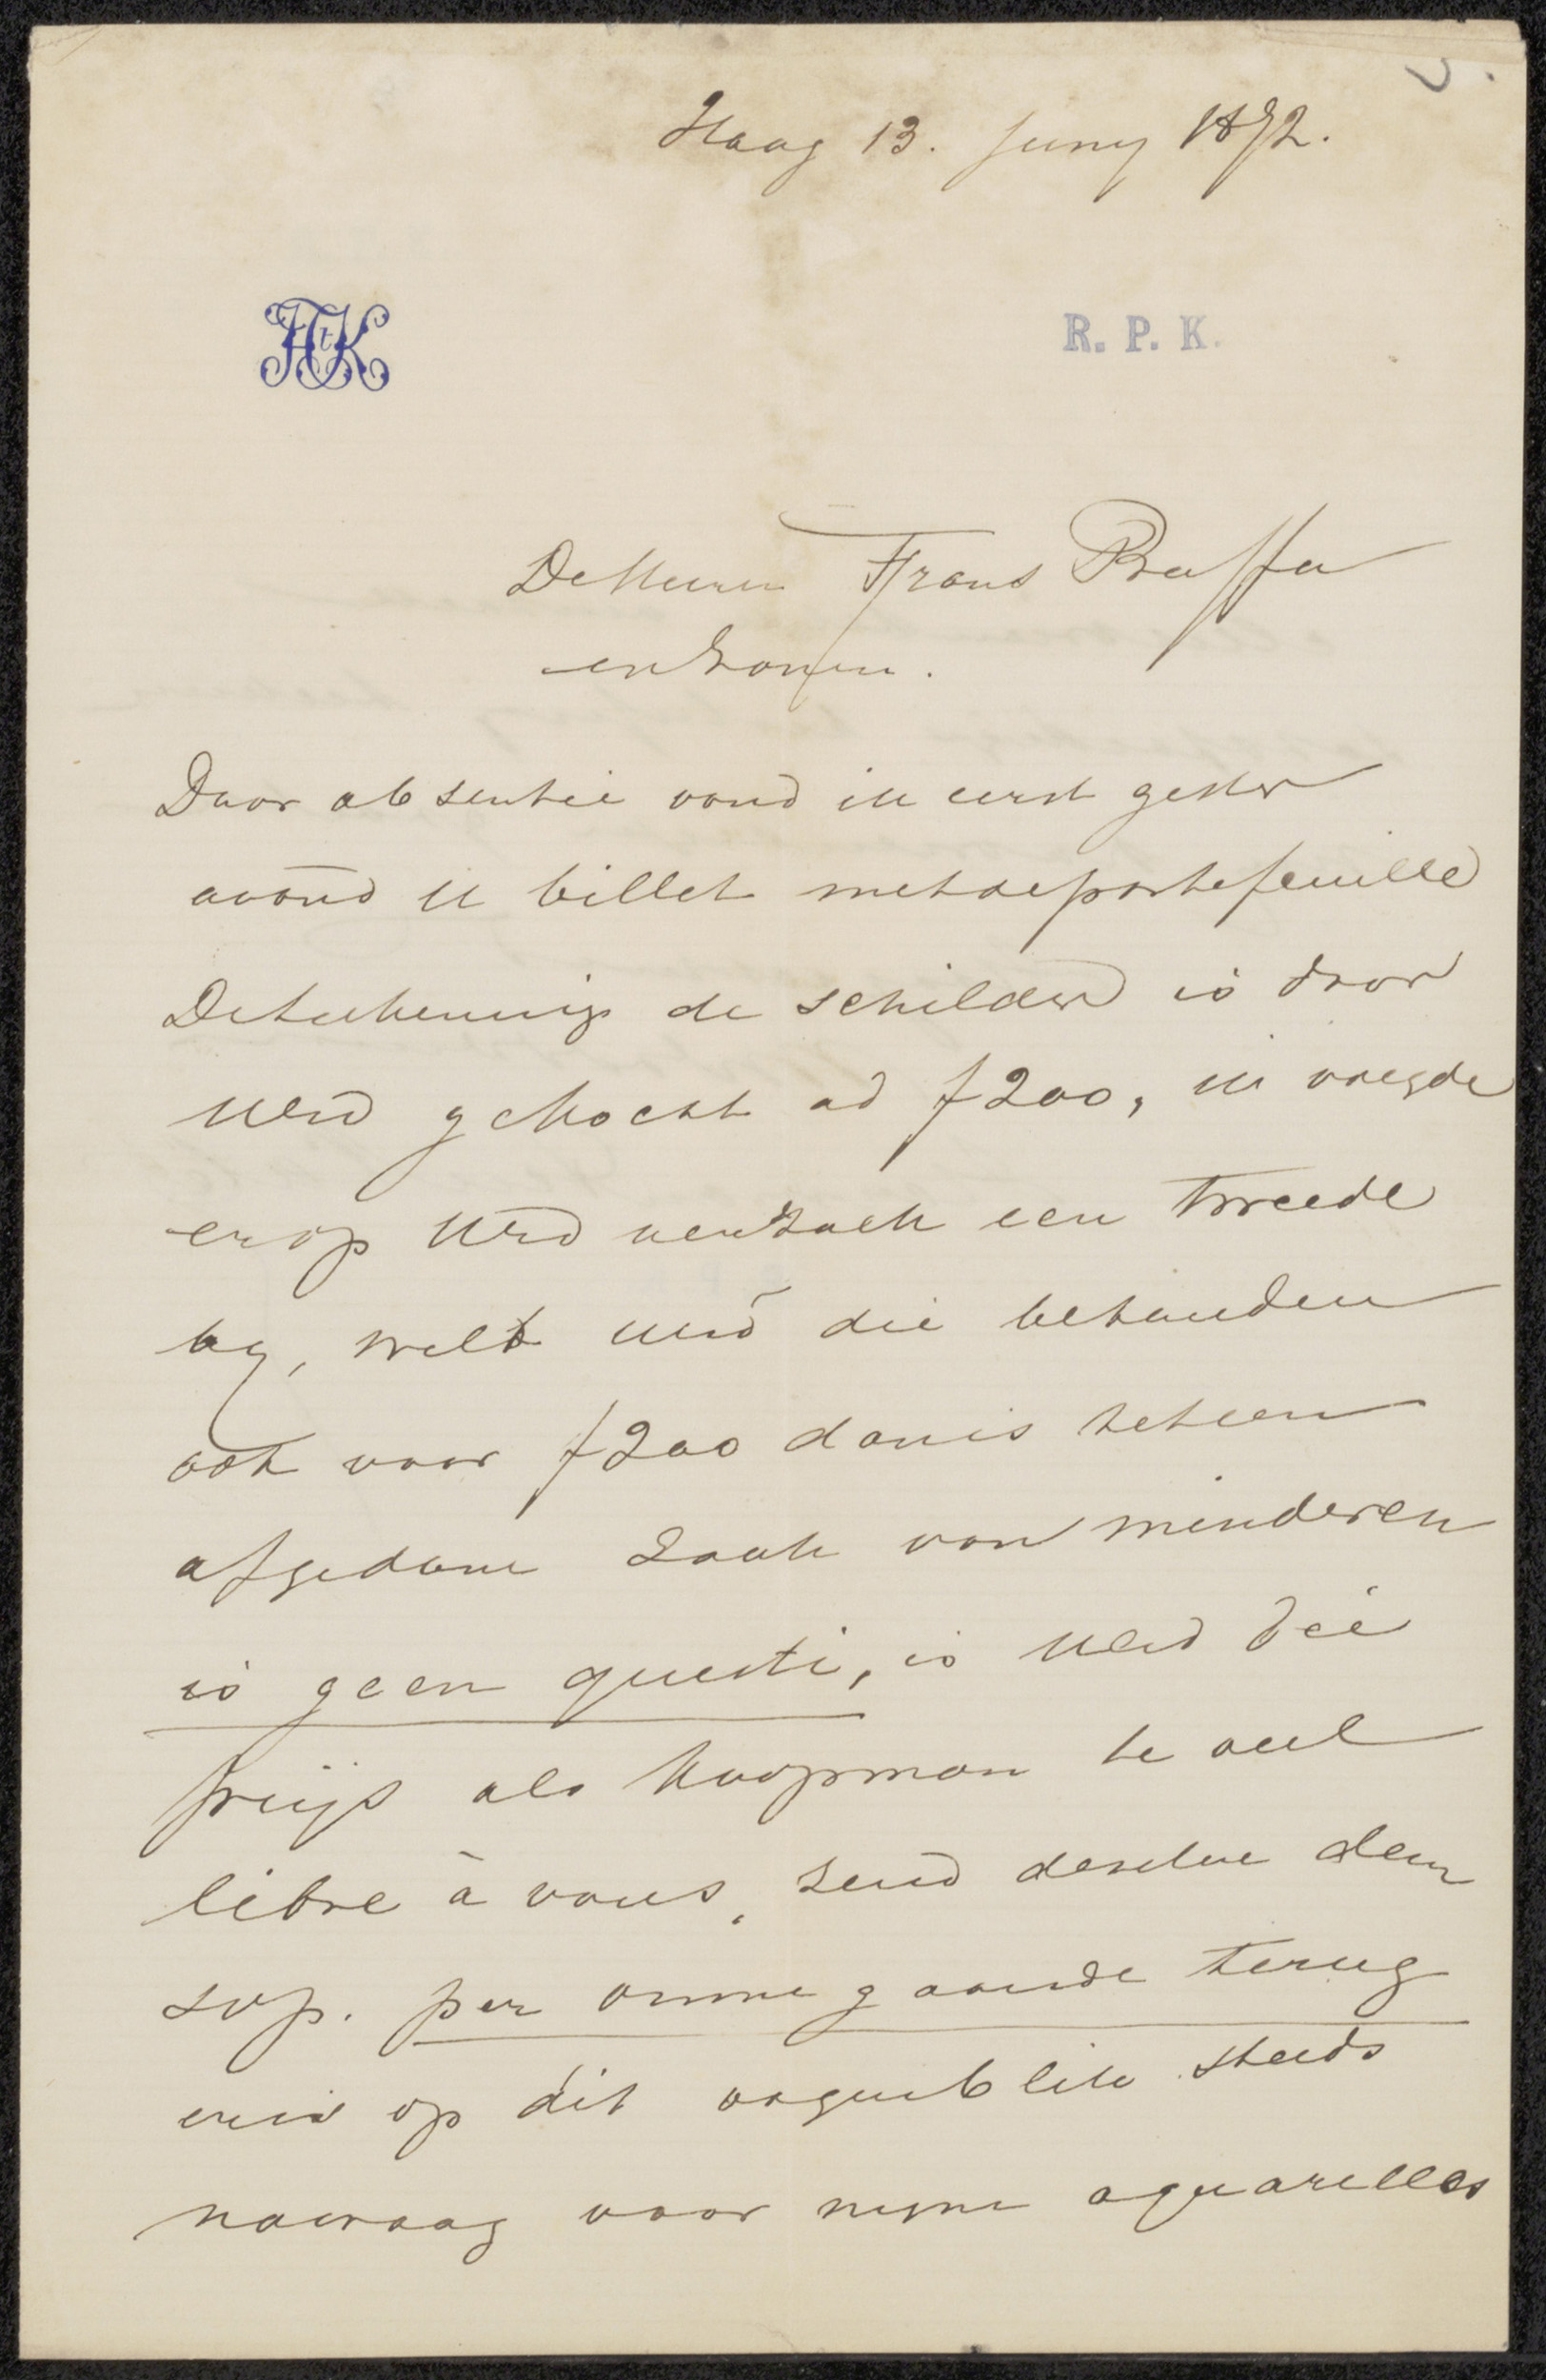 Haag 13. Juny 1872.
HtK
R. P. K.
De Heeren Frans Buffa
en Zonen.
Door absentie vond ik eerst gister
avond U billet met de portefeuille
De teekening de schilder is door
UEd gekocht ad f 200, ik voegde
er op UEd verzoek een tweede
by, wilt UEd die behouden
ook voor f 200 dan is het een
afgedane zaak van minderen
is geen questi, is UEd die
prijs als koopman te veel
libre à vous, zend dezelve dan
s v p. per omme gaande terug
er is op dit oogenblik steeds
navraag voor myne aquarelles